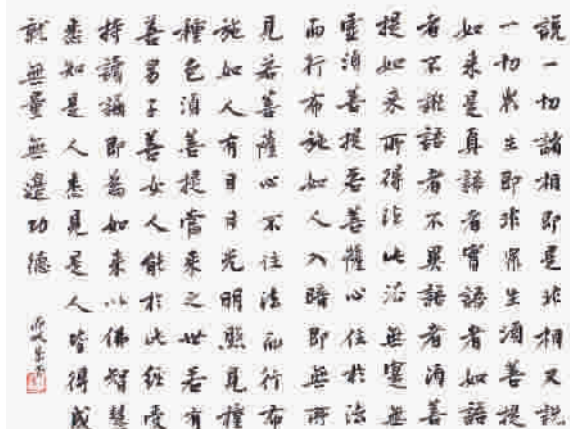 說一切諸相即是非相又說
一切眾生即非眾生須菩提
如來是真語者實語者如語
者不誑語者不異語者須菩
提如來所得法此法無實無
虛須菩提若菩薩心住於法
而行布施如人入暗即無所
見若菩薩心不住法而行布
施如人有目日光明照見種
種色須菩提當來之世若有
善男子善女人能於此經受
持讀誦即為如來以佛智慧
悉知是人悉見是人皆得成
就無量無邊功德